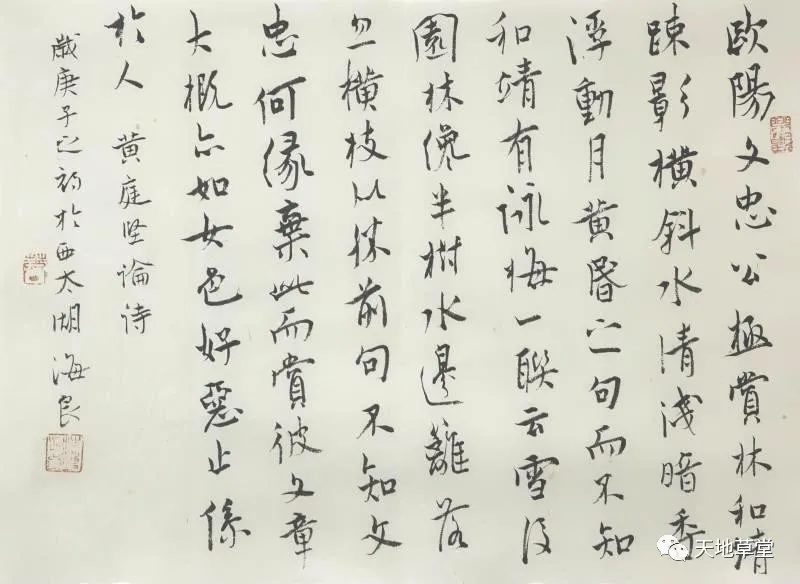 歐陽文忠公極賞林和靖
踈影橫斜水清淺暗香
浮動月黃昏之句而不知
和靖有詠梅一聯云雪後
園林纔半樹水邊籬落
忽橫枝似勝前句不知文
忠何緣棄此而賞彼文章
大概亦如女色好惡止係
於人 黃庭堅論詩
歲庚子之初於西太湖海良
天地草堂